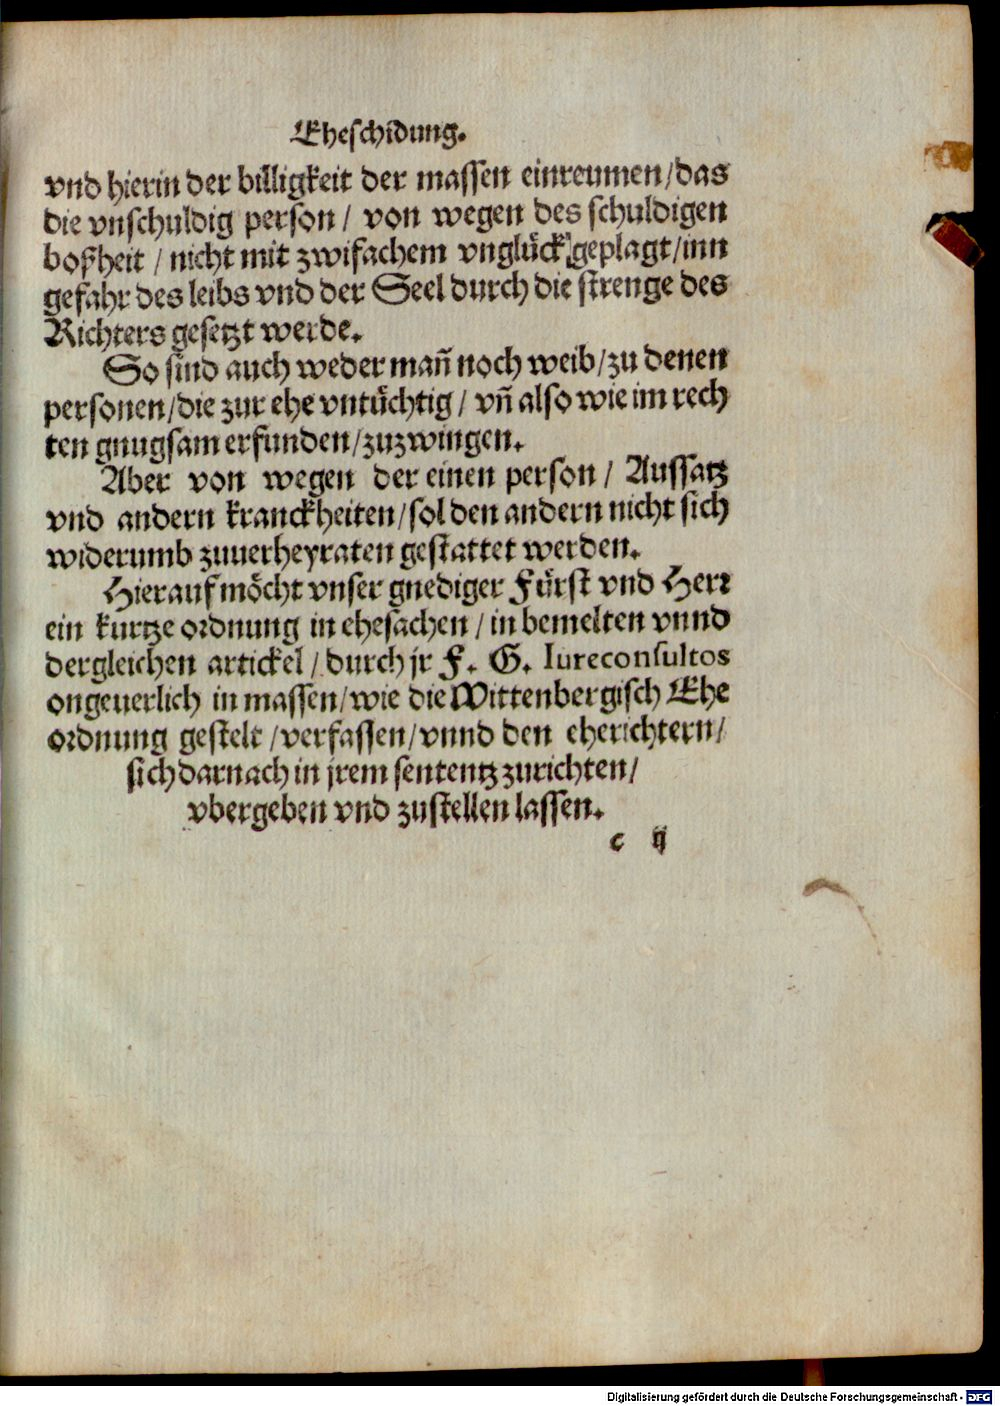 Eheschidung.
vnd hierin der billigkeit der massen einreumen/das
die vnschuldig person/ von wegen des schuldigen
boßheit / nicht mit zwifachem vnglück geplagt/inn
gefahr des leibs vnd der Seel durch die strenge des
Richters gesetzt werde.
So sind auch weder mañ noch weib/zu denen
personen/die zur ehe vntüchtig/ vñ also wie im rech
ten gnugsam erfunden/zuzwingen.
Aber von wegen der einen person/ Aussatz
vnd andern kranckheiten/sol den andern nicht sich
widerumb zuuerheyraten gestattet werden.
Hierauf möcht vnser gnediger Fürst vnd Herr
ein kurtze ordnung in ehesachen/in bemelten vnnd
dergleichen artickel/durch jr F. G. Iureconsultos
ongeuerlich in massen/wie die Wittenbergisch Ehe
ordnung gestelt/verfassen/vnnd den eherichtern/
sich darnach in jrem sententz zurichten/
vbergeben vnd zustellen lassen.
c ij
Digitalisierung gefördert durch die Deutsche Forschungsgemeinschaft - DFG